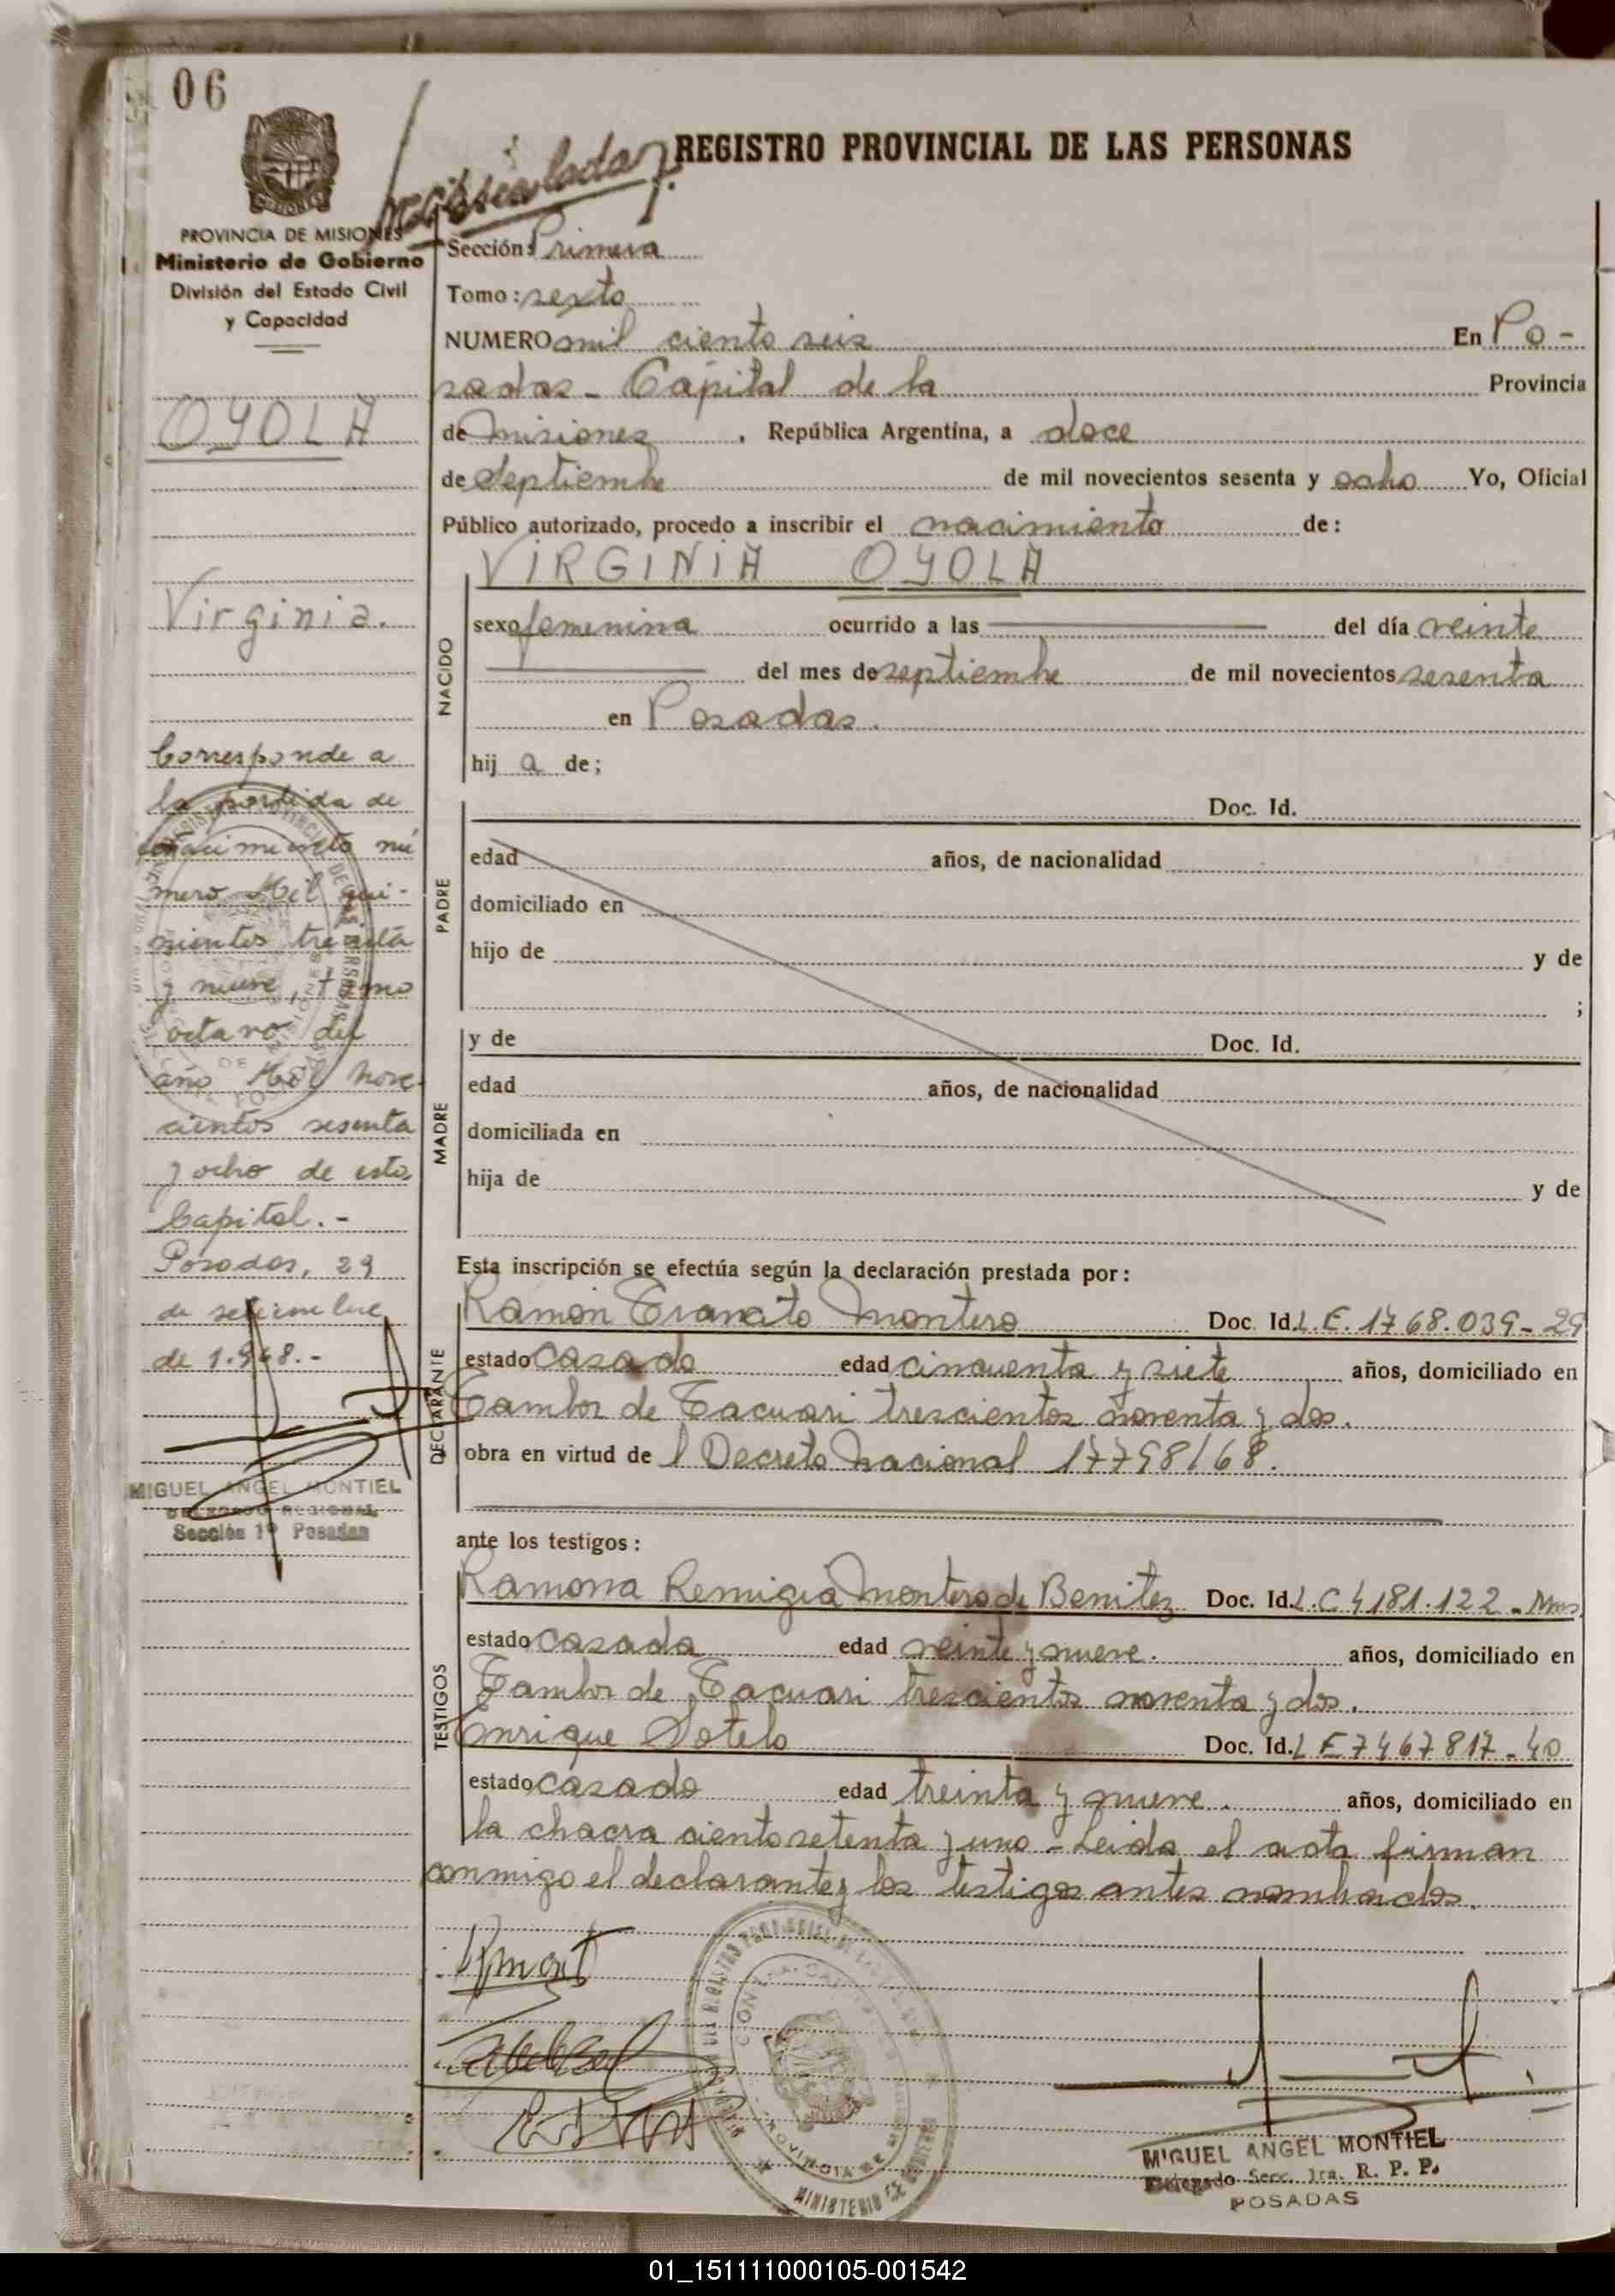 06
REGISTRO PROVINCIAL DE LAS PERSONAS
PROVINCIA DE MISIONES
Ministerio de Gobierno
División del Estado Civil
y Capacidad
OYOLA
Virginia.
Corresponde a
la partida de
nacimiento nú
mero Mil qui-
nientos treinta
y nueve, tomo
octavo del
año Mil nove
cientos sesenta
y ocho de esta
Capital.-
Posadas, 29
de setiembre
de 1.968.-
MIGUEL ANGEL MONTIEL
DELEGADO REGIONAL
Sección 1º Posadas
Sección: Primera
Tomo: sexto
NUMERO mil ciento seis En Po-
sadas - Capital de la Provincia
de Misiones, República Argentina, a doce
de Septiembre de mil novecientos sesenta y ocho Yo, Oficial
Público autorizado, procedo a inscribir el nacimiento de:
VIRGINIA OYOLA
NACIDO
sexo femenina ocurrido a las del día veinte
del mes de septiembre de mil novecientos sesenta
en Posadas.
hij a de;
PADRE
Doc. Id.
edad años, de nacionalidad
domiciliado en
hijo de y de
;
MADRE
y de Doc. Id.
edad años, de nacionalidad
domiciliada en
hija de y de
Esta inscripción se efectúa según la declaración prestada por:
DECLARANTE
Ramón Trancito Montero Doc. Id. L.E. 1768.039-29
estado casado edad cincuenta y siete años, domiciliado en
Tambor de Tacuari trescientos noventa y dos.
obra en virtud de l Decreto Nacional 17798/68.
ante los testigos:
TESTIGOS
Ramona Remigia Montero de Benitez Doc. Id. L.C 4181.122 - Mns
estado casada edad veinte y nueve. años, domiciliado en
Tambor de Tacuari trescientos noventa y dos.
Enrique Sotelo Doc. Id. L E 7467817-40
estado casado edad treinta y nueve. años, domiciliado en
la chacra ciento setenta y uno - Leida el acta firman
conmigo el declarante y los testigos antes nombrados.
MIGUEL ANGEL MONTIEL
Delegado Secc. 1ra. R. P. P.
POSADAS
01_151111000105-001542